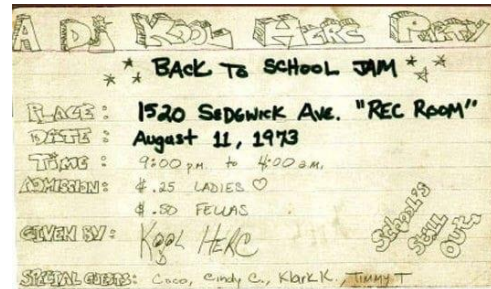 A DJ KOOL HERC PARTY
BACK TO SCHOOL JAM
PLACE: 1520 SEDGWICK AVE. "REC ROOM"
DATE: August 11, 1973
TIME: 9:00 pm. to 4:00 am.
ADMISSION: $.25 LADIES ♡
$.50 FELLAS
GIVEN BY: KOOL HERC
School's Still Out!
SPECIAL GUESTS: Coco, Cindy C., Klark K., TIMMY T